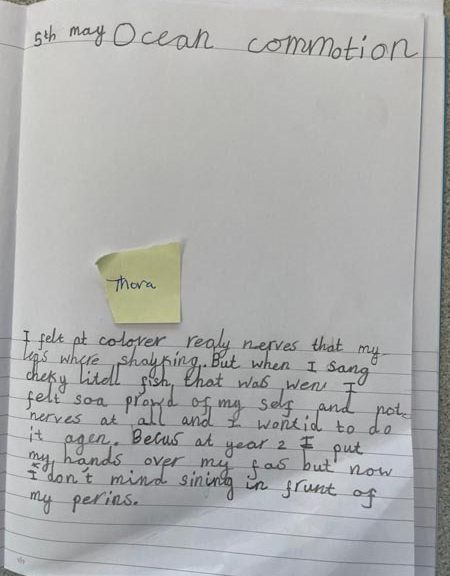 5th may Ocean commotion
Thora
I felt at colover realy nerves that my
legs where shalyking. But when I sang
cheky litell fish, that was wen I
felt soa prowd of my self and not
nerves at all and I wontid to do
it agen. Becus at year 2 I put
my hands over my fas but now
I don't mind sining in frunt of
my perins.